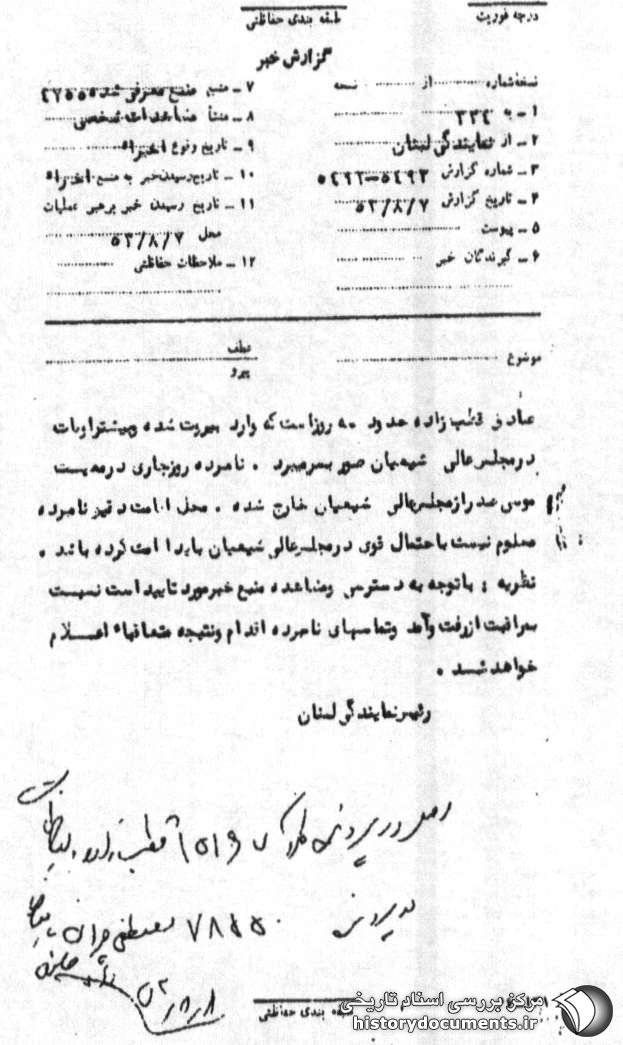 درجه فوریت
طبقه بندی حفاظتی
گزارش خبر
نسخه شماره از نسخه
۱ - به ۳۳۴
۲ - از نمایندگی لبنان
۳ - شماره گزارش
۴ - تاریخ گزارش ۵۳/۸/۷
۵ - پیوست
۶ - گیرندگان خبر
۷ - منبع منبع معرفی شده
۸ - منشأ مشاهدات شخصی
۹ - تاریخ وقوع اخیراً
۱۰ - تاریخ رسیدن خبر به منبع اخیراً
۱۱ - تاریخ رسیدن خبر برهبر عملیات
محل ۵۳/۸/۷
۱۲ - ملاحظات حفاظتی
موضوع
عطف
پیرو
صادق قطب زاده حدود سه روز است که وارد بیروت شده و بیشتر اوقات
در مجلس عالی شیعیان صور بسر میبرد . نامبرده روز جاری در معیت
موسی صدر از مجلس عالی شیعیان خارج شده . محل اقامت دقیق نامبرده
معلوم نیست باحتمال قوی در مجلس عالی شیعیان باید اقامت کرده باشد .
نظریه : با توجه به دسترسی و مشاهده منبع خبر مورد تایید است نسبت
بمراقبت از رفت و آمد و تماسهای نامبرده اقدام و نتیجه متعاقباً اعلام
خواهد شد .
رئیس نمایندگی لبنان
اصل در پرونده
قطب زاده
در پرونده
مصطفی چمران
طبقه بندی حفاظتی
مرکز بررسی اسناد تاریخی
historydocuments.ir